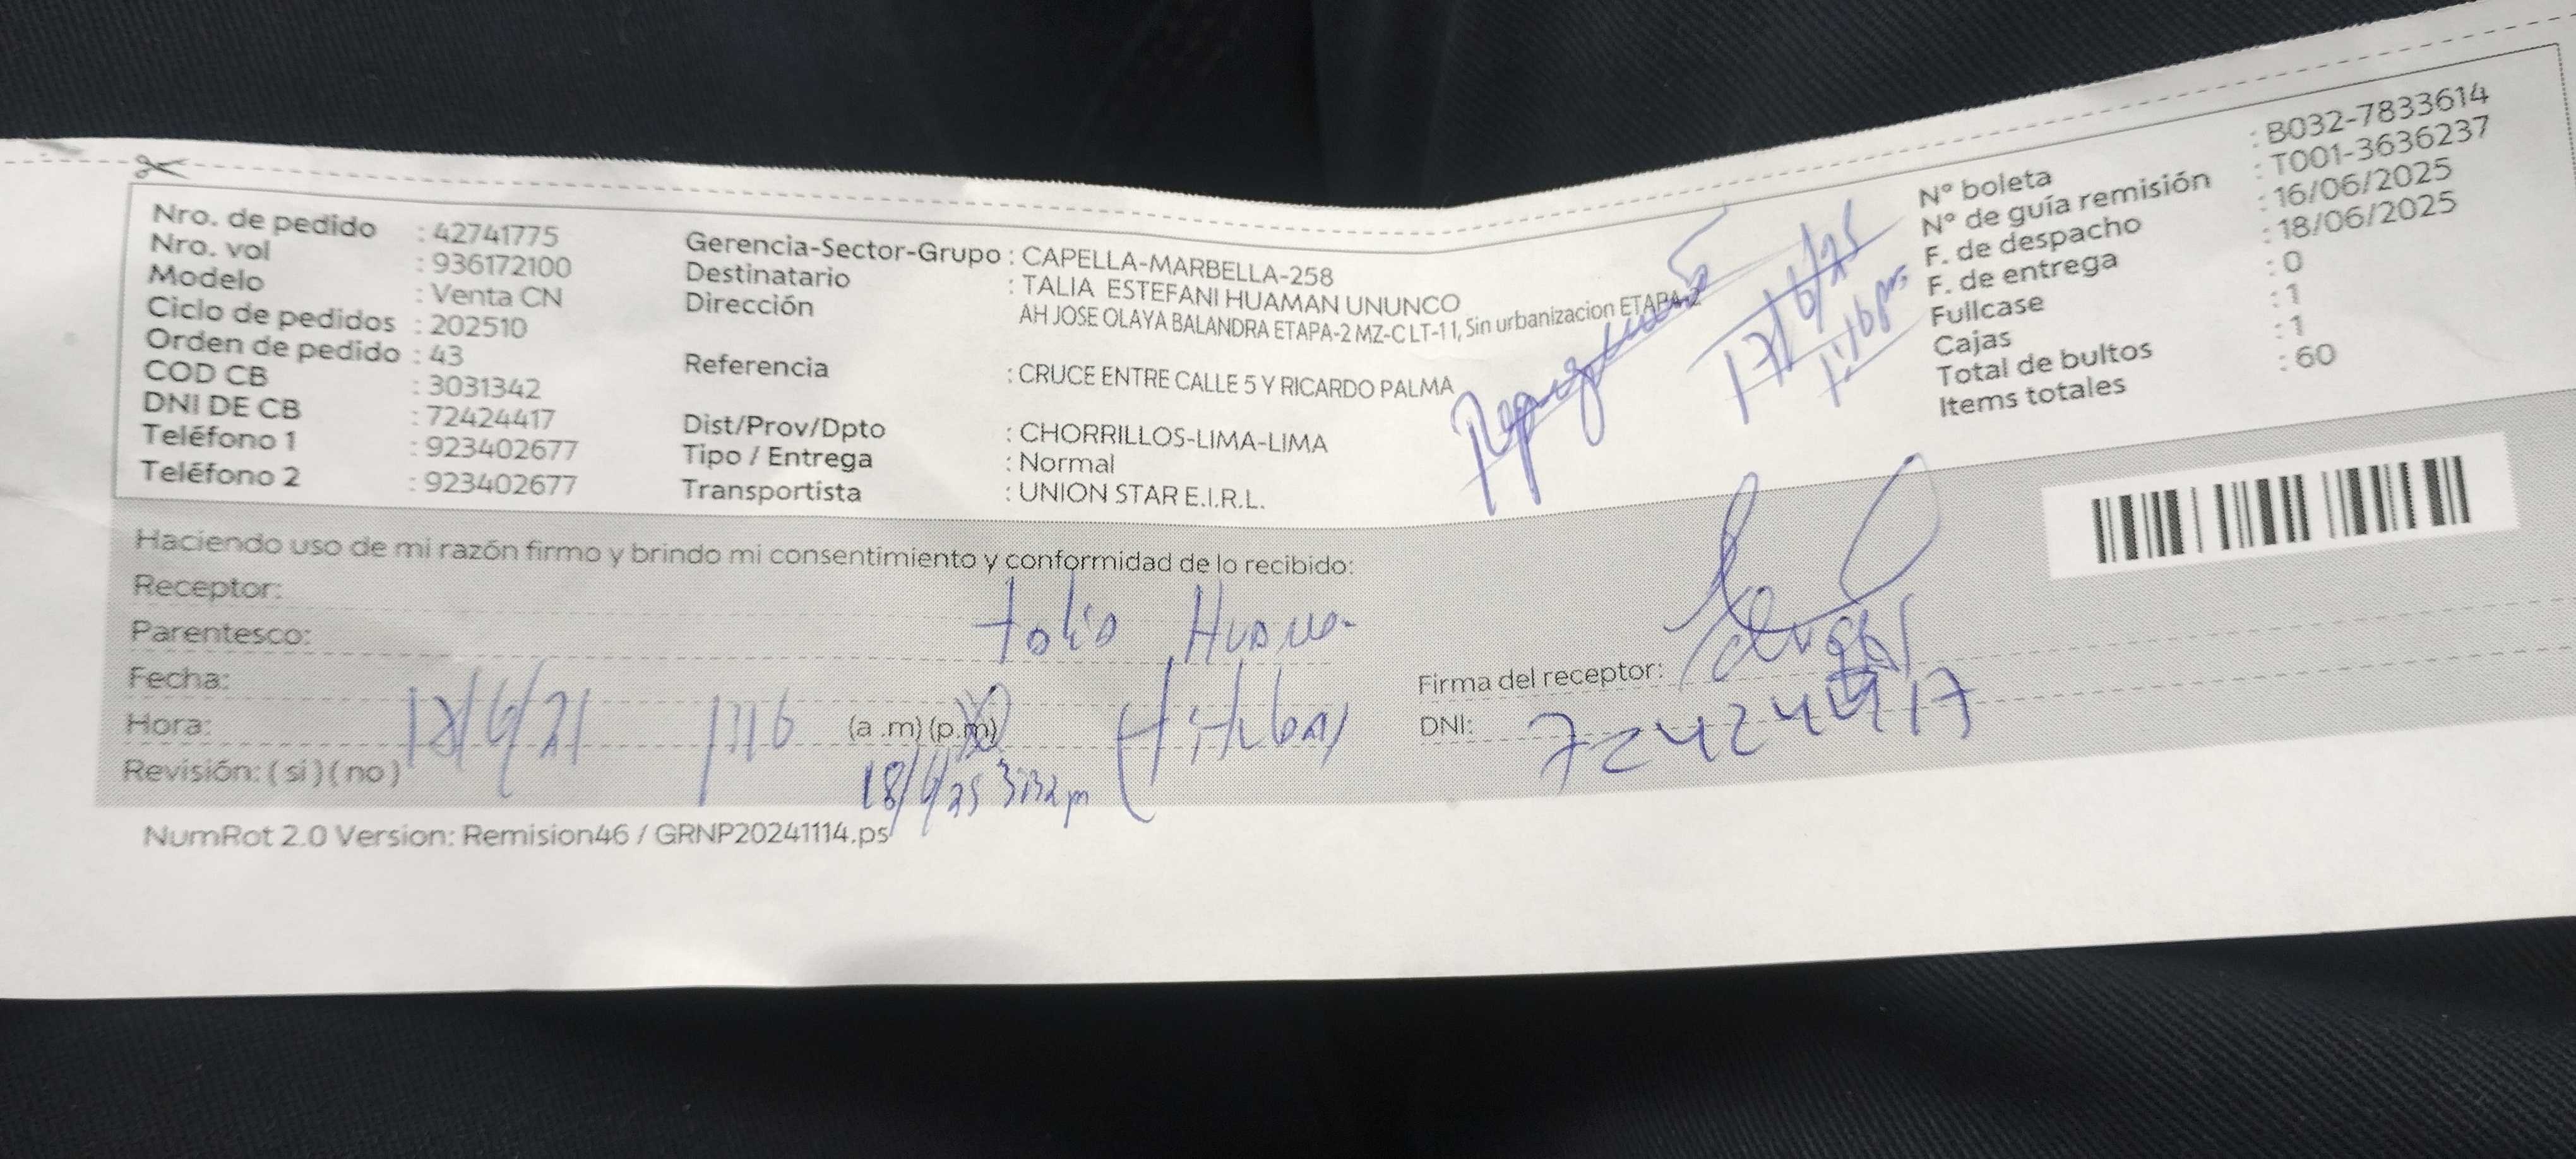 Nro. de pedido : 42741775
Nro. vol : 936172100
Modelo : Venta CN
Ciclo de pedidos : 202510
Orden de pedido : 43
COD CB : 3031342
DNI DE CB : 72424417
Teléfono 1 : 923402677
Teléfono 2 : 923402677
Gerencia-Sector-Grupo : CAPELLA-MARBELLA-258
Destinatario : TALIA ESTEFANI HUAMAN UNUNCO
Dirección : AH JOSE OLAYA BALANDRA ETAPA-2 MZ-C LT-11, Sin urbanizacion ETAPA-2
Referencia : CRUCE ENTRE CALLE 5 Y RICARDO PALMA
Dist/Prov/Dpto : CHORRILLOS-LIMA-LIMA
Tipo / Entrega : Normal
Transportista : UNION STAR E.I.R.L.
17/6/25
N° boleta : B032-7833614
N° de guía remisión : T001-3636237
F. de despacho : 16/06/2025
F. de entrega : 18/06/2025
Fullcase : 0
Cajas : 1
Total de bultos : 1
Items totales : 60
Haciendo uso de mi razón firmo y brindo mi consentimiento y conformidad de lo recibido:
Receptor:
Parentesco:
Fecha:
Hora: (a .m) (p.m)
Revisión: ( si ) ( no )
18/6/25 3:32 pm
Firma del receptor:
DNI:
NumRot 2.0 Version: Remision46 / GRNP20241114.ps